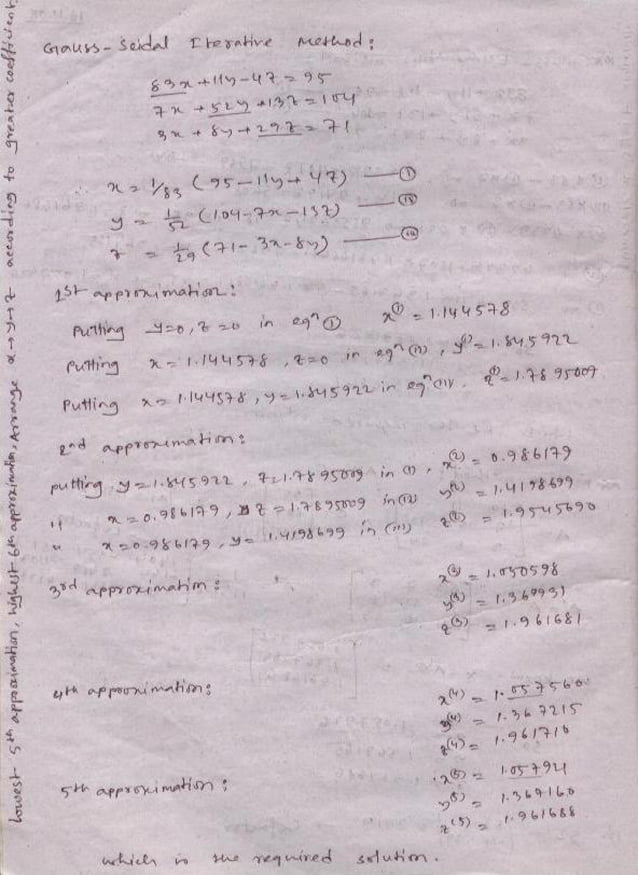 Gauss-Seidal Iterative Method:
83x + 11y - 4z = 95
7x + 52y + 13z = 104
3x + 8y + 29z = 71
∴ x = 1/83 (95 - 11y + 4z) — (i)
y = 1/52 (104 - 7x - 13z) — (ii)
z = 1/29 (71 - 3x - 8y) — (iii)
1st approximation:
Putting y=0, z=0 in eqⁿ (i) x⁽¹⁾ = 1.144578
Putting x = 1.144578, z=0 in eqⁿ (ii), y⁽¹⁾ = 1.845922
Putting x = 1.144578, y = 1.845922 in eqⁿ (iii). z⁽¹⁾ = 1.7895009
2nd approximation:
putting y = 1.845922, z = 1.7895009 in (i), x⁽²⁾ = 0.986179
" x = 0.986179, z = 1.7895009 in (ii) y⁽²⁾ = 1.4198699
" x = 0.986179, y = 1.4198699 in (iii) z⁽²⁾ = 1.9545690
3rd approximation: x⁽³⁾ = 1.050598
y⁽³⁾ = 1.369931
z⁽³⁾ = 1.961681
4th approximation: x⁽⁴⁾ = 1.057560
y⁽⁴⁾ = 1.367215
z⁽⁴⁾ = 1.961710
5th approximation: x⁽⁵⁾ = 1.05792
y⁽⁵⁾ = 1.367160
z⁽⁵⁾ = 1.961688
which is the required solution.
Lowest 5th approximation, highest 6th approximation, Arrange x→y→z according to greater coefficient.